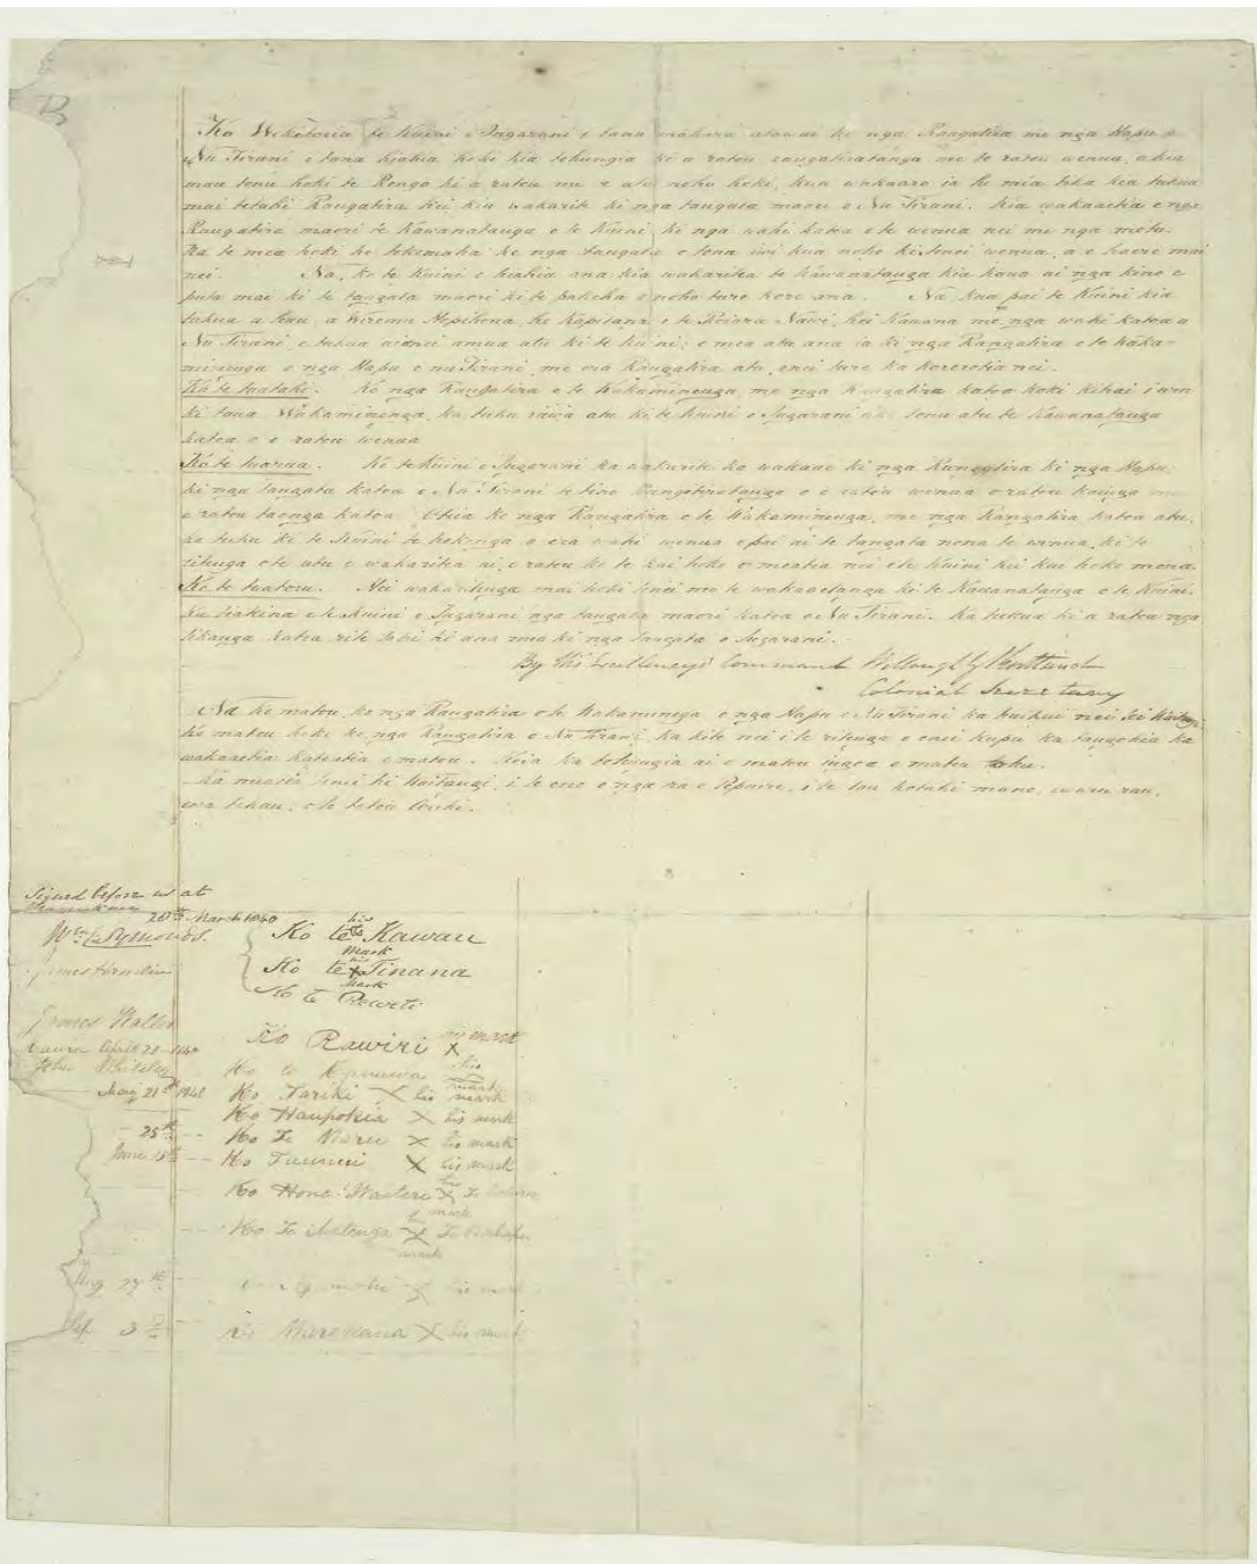 B
Ko Wikitoria te Kuini o Ingarani i tana mahara atawai ki nga Rangatira me nga Hapu o
Nu Tirani i tana hiahia hoki kia tohungia ki a ratou rangatiratanga me to ratou wenua, a kia
mau tonu hoki te Rongo ki a ratou me te atu noho hoki, kua wakaaro ia he mea tika kia tukua
mai tetahi Rangatira hei kai wakarite ki nga tangata maori o Nu Tirani. Kia wakaaetia e nga
Rangatira maori te Kawanatanga o te Kuini, ki nga wahi katoa o te wenua nei me nga motu.
Na te mea hoki he tokomaha ke nga tangata o tona iwi kua noho ki tenei wenua, a e haere mai
nei. Na, ko te Kuini e hiahia ana kia wakaritea te Kawanatanga kia kaua ai nga kino e
puta mai ki te tangata maori ki te pakeha e noho ture kore ana. Na kua pai te Kuini kia
tukua a hau, a Wiremu Hopihona, he Kapitana i te Roiara Nawi, hei Kawana mo nga wahi katoa o
Nu Tirani, e tukua aianei amua atu ki te Kuini; e mea atu ana ia ki nga Rangatira o te Waka-
minenga o nga Hapu o nu Tirani, me era Rangatira atu, enei ture ka korerotia nei.
Ko te tuatahi. Ko nga Rangatira o te Wakaminenga, me nga Rangatira katoa hoki kihai i uru
ki taua Wakaminenga, ka tuku rawa atu ki te Kuini o Ingarani ake tonu atu te Kawanatanga
katoa o o ratou wenua
Ko te tuarua. Ko te Kuini o Ingarani ka wakarite ka wakaae ki nga Rangatira ki nga Hapu,
ki nga tangata katoa o Nu Tirani te tino Rangatiratanga o o ratou wenua o ratou kainga me
o ratou taonga katoa. Otiia ko nga Rangatira o te Wakaminenga, me nga Rangatira katoa atu,
ka tuku ki te Kuini te hokonga o era wahi wenua e pai ai te tangata nona te wenua, ki te
ritenga o te utu e wakaritea ai e ratou ko te kai hoko e meatia nei e te Kuini hei kai hoko mona.
Ko te tuatoru. Hei wakaritenga mai hoki tenei mo te wakaaetanga ki te Kawanatanga o te Kuini.
Ka tiakina e te Kuini o Ingarani nga tangata maori katoa o Nu Tirani. Ka tukua ki a ratou nga
tikanga katoa rite tahi ki ana mea ki nga tangata o Ingarani.
By His Excellency's Command Willoughby Shortland
Colonial Secretary
Na ko matou, ko nga Rangatira o te Wakaminenga o nga Hapu o Nu Tirani ka huihui nei ki Waitangi
ko matou hoki ko nga Rangatira o Nu Tirani, ka kite nei i te ritenga o enei kupu ka tangohia ka
wakaaetia katoatia e matou. Koia ka tohungia ai o matou ingoa o matou tohu.
Ka meatia tenei ki Waitangi, i te ono o nga ra o Pepuere, i te tau kotahi mano, ewaru rau,
ewa tekau, o to tatou Ariki.
Signed before us at
20th March 1840
Wm C Symonds.
James Hamlin
his
Ko te x Kawau
Mark
his
Ko te x Tinana
Mark
Ko te Reweti
James Wallis
April 28 1840
Ko Rawiri X his mark
John Whiteley
Ko te Kanawa his mark
May 21st 1840 Ko Tariki X his mark
Ko Haupokia X his mark
25th Ko Te Waru X his mark
June 15th Ko Taunui X his mark
Ko Hone Waitere X his mark
Ko Te Matenga X his mark
Aug 27th X his mark
Sep 3d Ko Warekaua X his mark